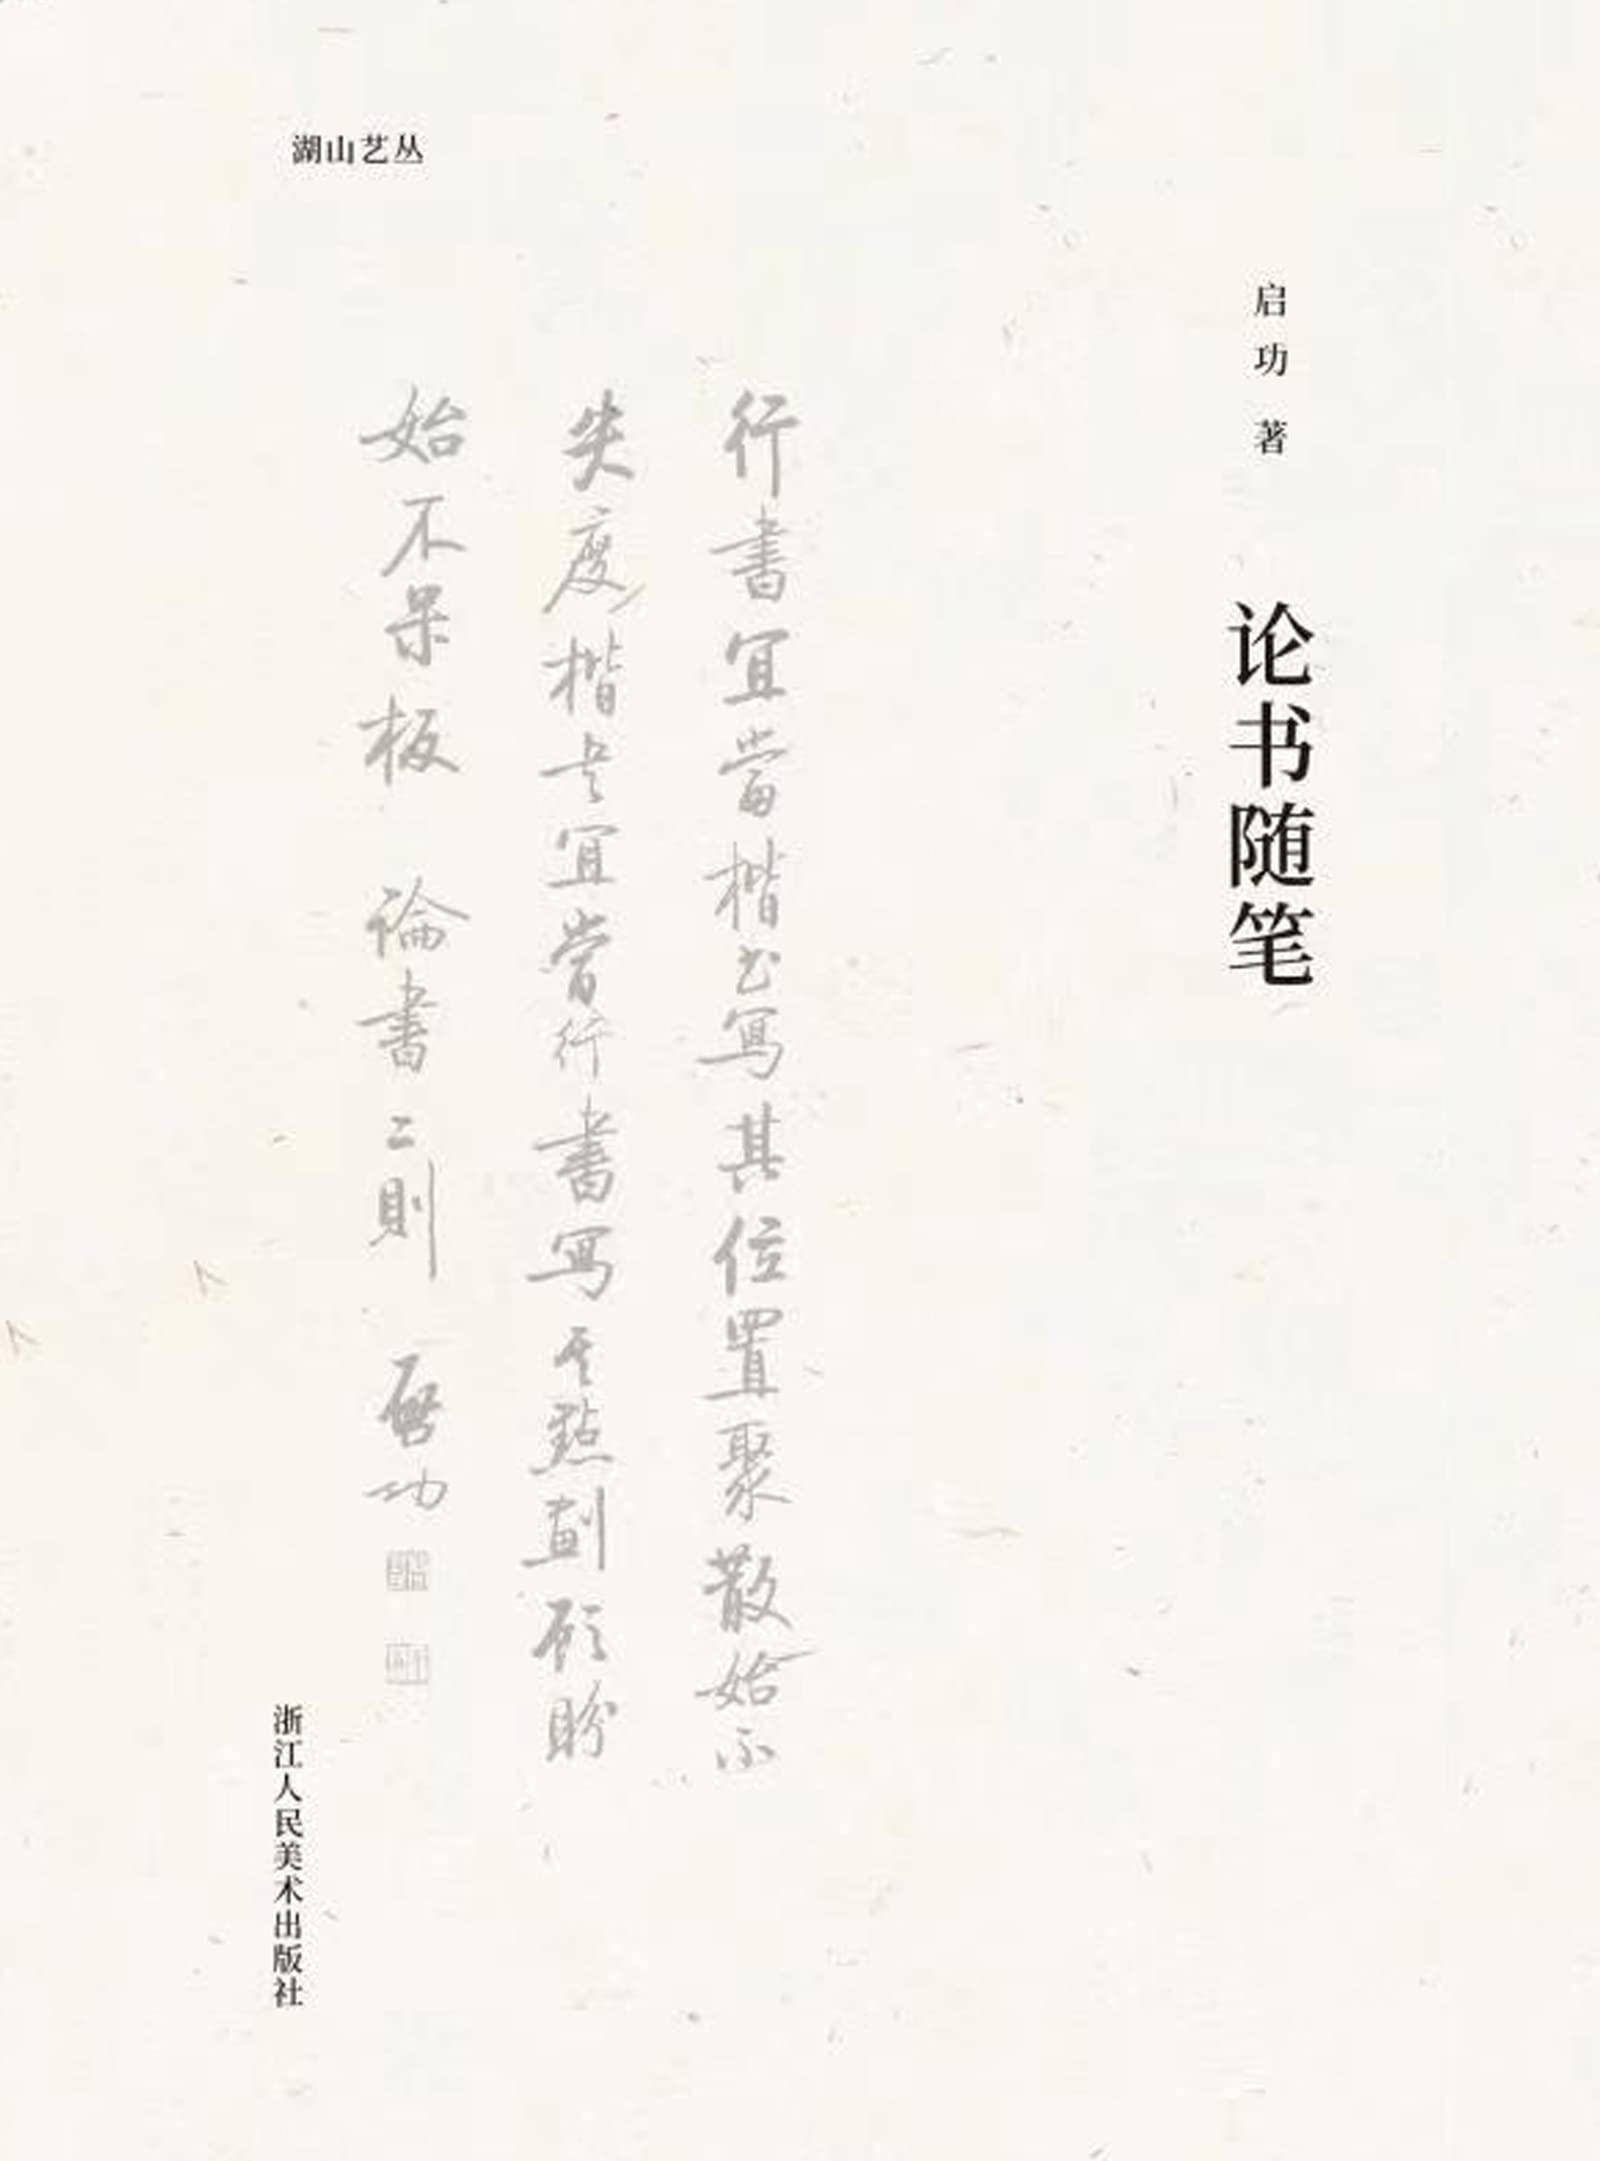 湖山艺丛
启功 著
论书随笔
行書宜當楷书寫其位置聚散始不
失度楷书宜當行書寫其點劃顾盼
始不呆板 論書二則 啓功
浙江人民美术出版社